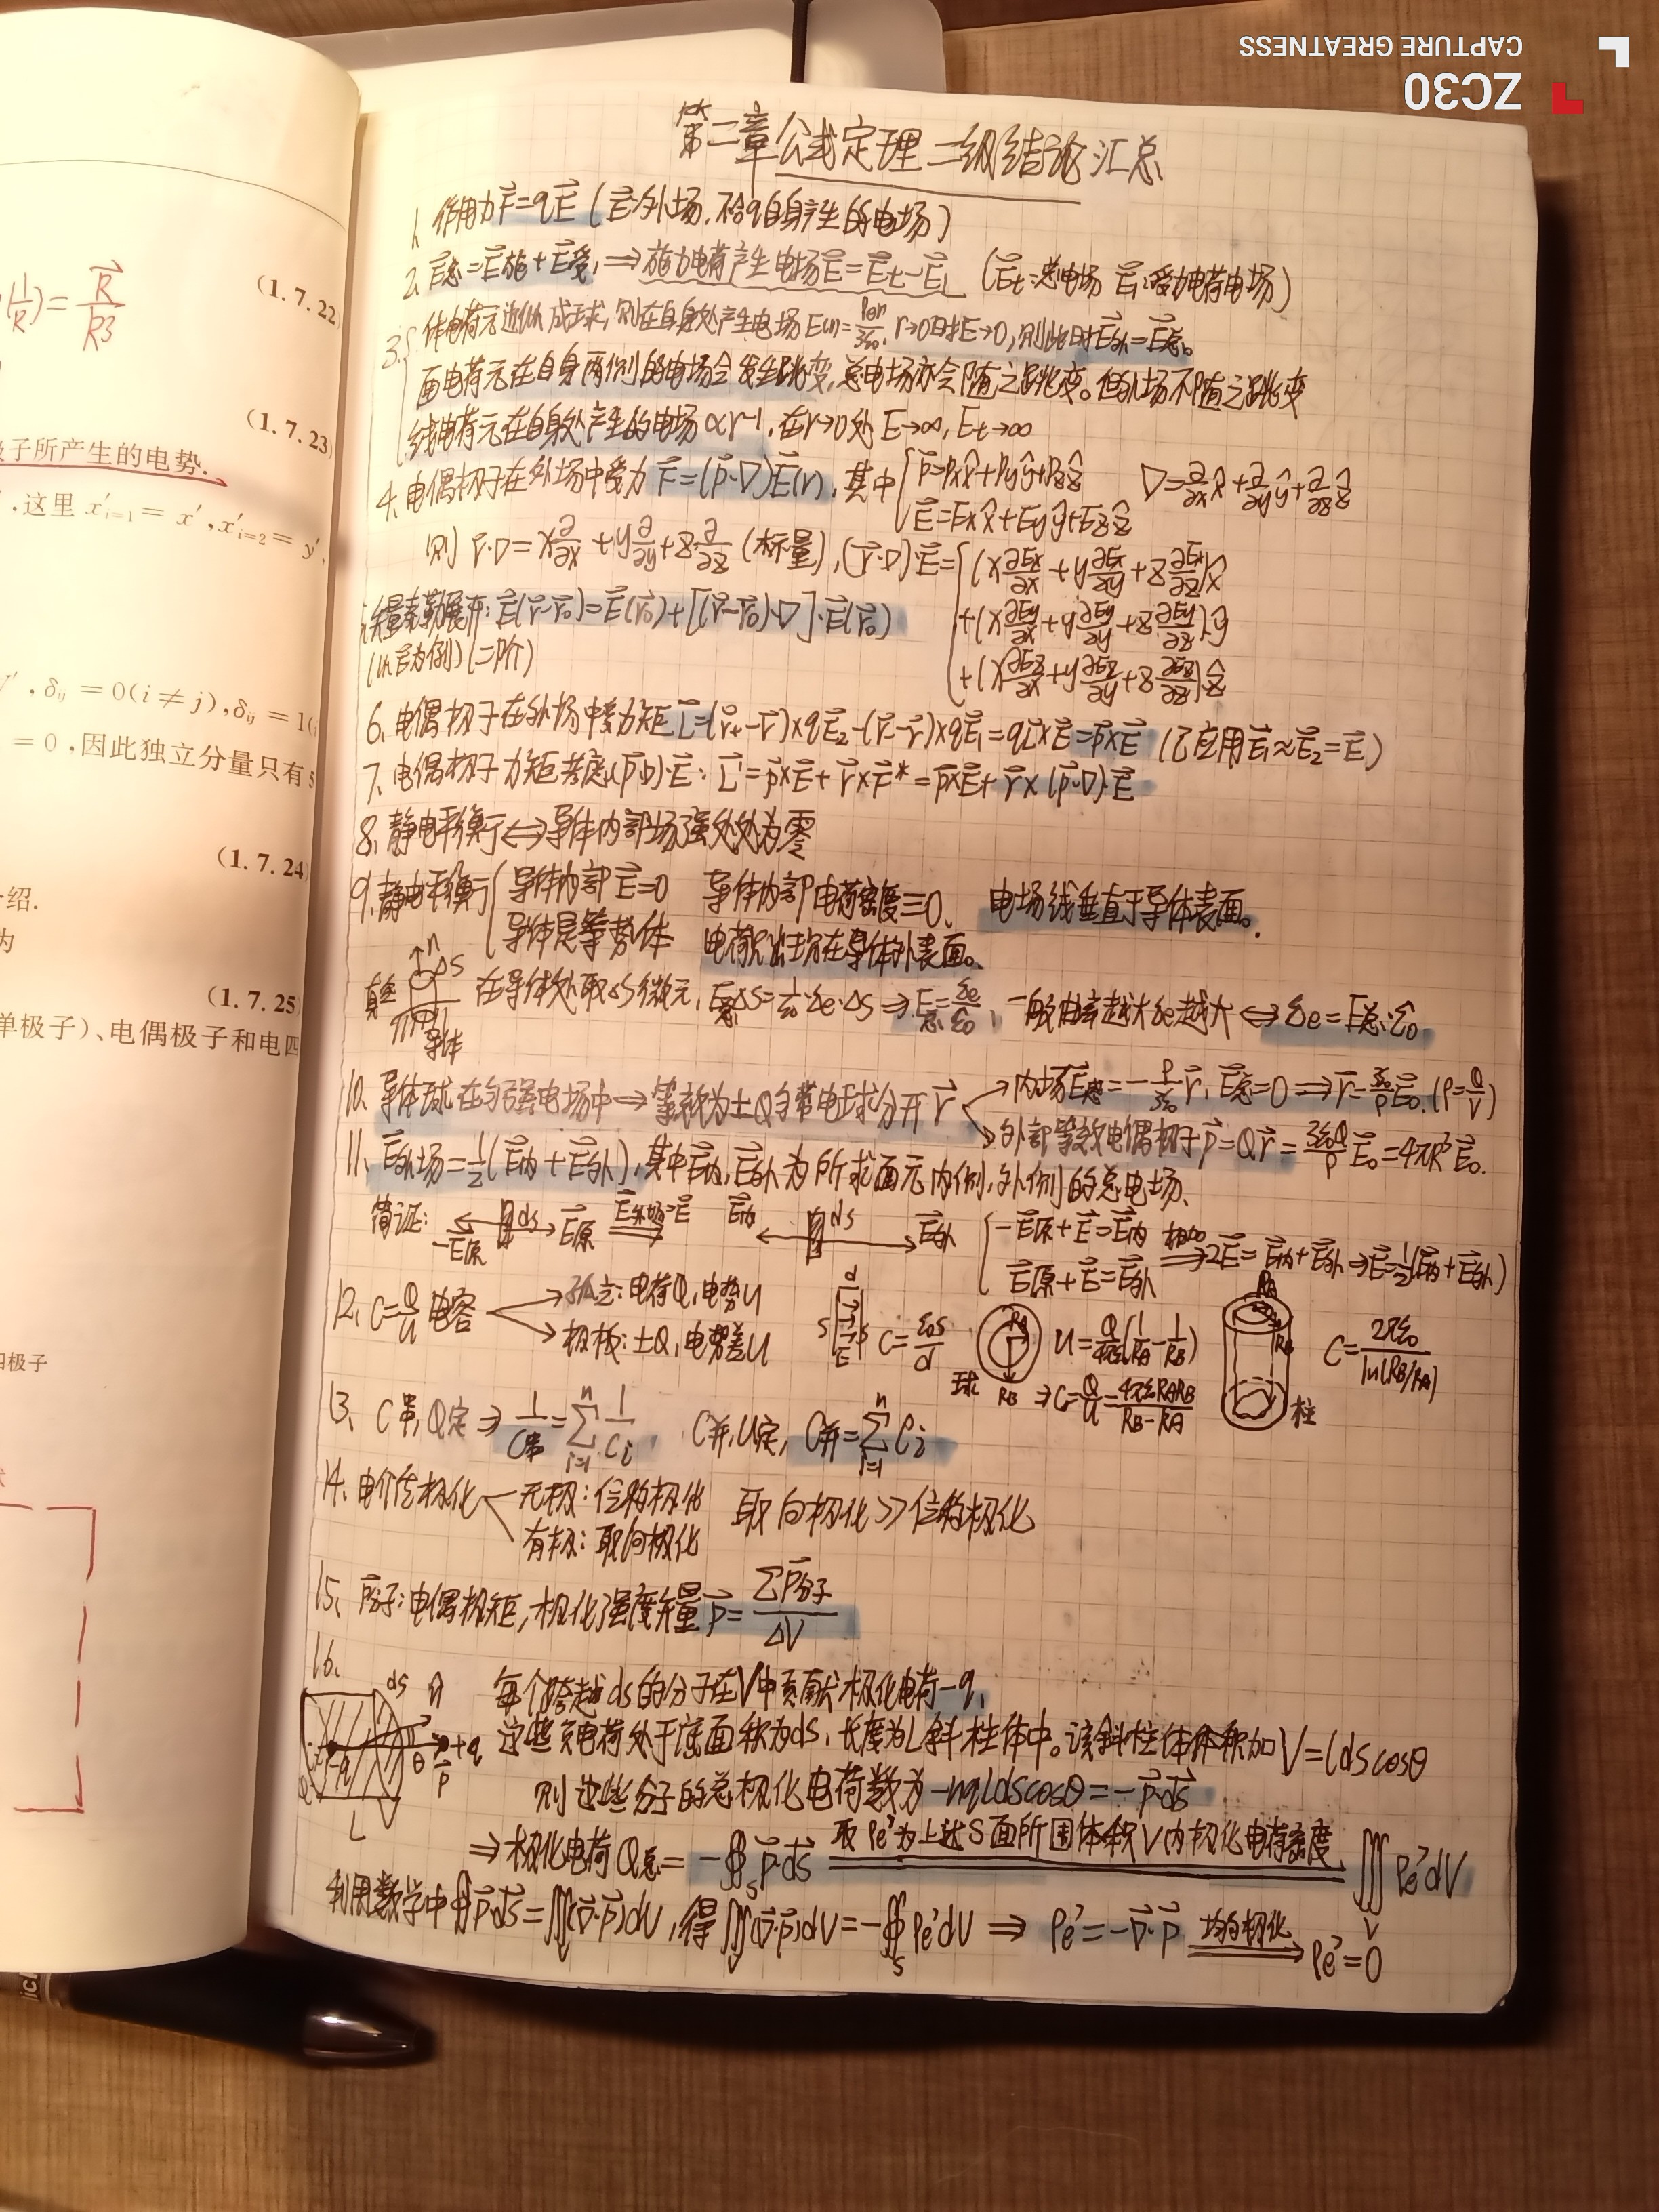 ZC30
CAPTURE GREATNESS
(1/R)=R⃗/R3
(1.7.22)
(1.7.23)
子所产生的电势.
,这里 x′ᵢ₌₁ = x′,x′ᵢ₌₂ = y′,
,δᵢⱼ = 0(i ≠ j),δᵢⱼ = 1(
= 0,因此独立分量只有5
(1.7.24)
绍.
为
(1.7.25)
单极子)、电偶极子和电四
四极子
第二章公式定理二级结论汇总
1、作用力F⃗=qE⃗ (E⃗:外场,不含q自身产生的电场)
2、E⃗总=E⃗施+E⃗受, ⇒施力电荷产生电场E⃗=E⃗t-E⃗1 (E⃗t:总电场 E⃗1:受力电荷电场)
3、体电荷元近似成球,则在自身处产生电场E(r)=ρer/3ε0, r→0时E→0,则此时E⃗外=E⃗总。
面电荷元在自身两侧的电场会发生跳变,总电场亦会随之跳变。但外场不随之跳变
线电荷元在自身处产生的电场∝r⁻¹,在r→0处E→∞,Et→∞
4、电偶极子在外场中受力 F⃗=(p⃗·∇)E⃗(r),其中 p⃗=pxx̂+pyŷ+pzẑ ∇=∂/∂x x̂+∂/∂y ŷ+∂/∂z ẑ
E⃗=Exx̂+Eyŷ+Ezẑ
则 r⃗·∇=x∂/∂x+y∂/∂y+z∂/∂z (标量),(r⃗·∇)·E⃗=(x∂Ex/∂x+y∂Ex/∂y+z∂Ex/∂z)x̂
+(x∂Ey/∂x+y∂Ey/∂y+z∂Ey/∂z)ŷ
+(x∂Ez/∂x+y∂Ez/∂y+z∂Ez/∂z)ẑ
矢量泰勒展开:E⃗(r⃗-r⃗0)=E⃗(r⃗0)+[(r⃗-r⃗0)·∇]·E⃗(r⃗0)
(以E⃗为例)(二阶)
6、电偶极子在外场中受力矩L⃗=(r⃗+-r⃗)×qE⃗2-(r⃗--r⃗)×qE⃗1=ql⃗×E⃗=p⃗×E⃗ (已应用E⃗1≈E⃗2=E⃗)
7、电偶极子力矩考虑(p⃗·∇)·E⃗:L⃗=p⃗×E⃗+r⃗×F⃗*=p⃗×E⃗+r⃗×(p⃗·∇)·E⃗
8、静电平衡⇔导体内部场强处处为零
9、静电平衡 导体内部E⃗=0 导体内部电荷密度≡0、 电场线垂直于导体表面。
导体是等势体 电荷只出现在导体外表面。
真空 n ΔS 导体 在导体处取ΔS微元,E总ΔS=1/ε0·σe·ΔS⇒E总=σe/ε0, 一般曲率越大σe越大⇔σe=E总·ε0
10、导体球在匀强电场中⇒等效为±Q匀带电球分开r⃗ 内场E⃗感=-ρ/3ε0 r⃗, E⃗总=0⇒r⃗=3ε0/ρ E⃗0. (ρ=Q/V)
外部等效电偶极子p⃗=Qr⃗=3ε0Q/ρ E⃗0=4πR³E⃗0.
11、E⃗外场=1/2(E⃗内+E⃗外),其中E⃗内,E⃗外为所求面元内侧,外侧的总电场、
简证: -E⃗原 ds E⃗原 E⃗外场=E⃗ E⃗内 ds E⃗外 -E⃗原+E⃗=E⃗内 相加 ⇒2E⃗=E⃗内+E⃗外⇒E⃗=1/2(E⃗内+E⃗外)
E⃗原+E⃗=E⃗外
12、C=Q/U 电容 孤立:电荷Q,电势U d S E C=ε0S/d RA RB 球 U=Q/4πε0(1/RA-1/RB) RA RB 柱 C=2πε0/ln(RB/RA)
极板:±Q,电势差U ⇒C=Q/U=4πε0RARB/RB-RA
13、C串,Q定⇒1/C串=∑ⁿᵢ₌₁1/Ci C并,U定,C并=∑ⁿᵢ₌₁Ci
14、电介质极化 无极:位移极化 取向极化≫位移极化
有极:取向极化
15、p⃗分子:电偶极矩,极化强度矢量p⃗=∑p⃗分子/ΔV
16、
ds n̂ -q θ +q p⃗ L
每个跨越ds的分子在V中贡献极化电荷-q、
这些负电荷处于底面积为ds,长度为L斜柱体中。该斜柱体体积加V=ldscosθ
则这些分子的总极化电荷数为-nqldscosθ=-p⃗·ds⃗
⇒极化电荷Q总=-∯s p⃗·ds⃗ 取ρe′为上述S面所围体积V内极化电荷密度 ∭v ρe′dV
利用数学中∯p⃗·ds⃗=∭(∇·p⃗)dV,得∭v(∇·p⃗)dV=-∯s ρe′dV ⇒ ρe′=-∇·p⃗ 均匀极化 ρe′=0